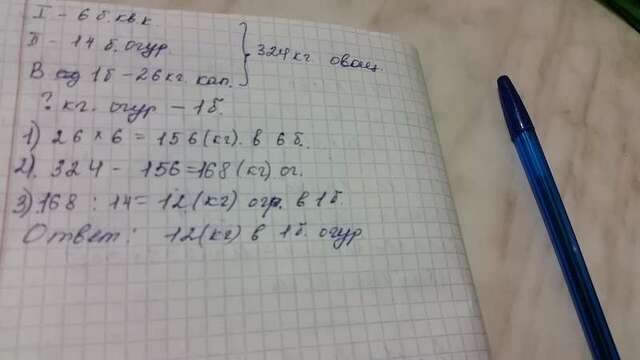 I - 6 б. кв. к.
II - 14 б. огур.
В 1б - 26 кг. кап.
324 кг овощ.
? кг. огур - 1б.
1) 26 × 6 = 156 (кг). в 6 б.
2). 324 - 156 = 168 (кг) ог.
3) 168 : 14 = 12 (кг) огр. в 1б.
Ответ: 12 (кг) в 1б. огур